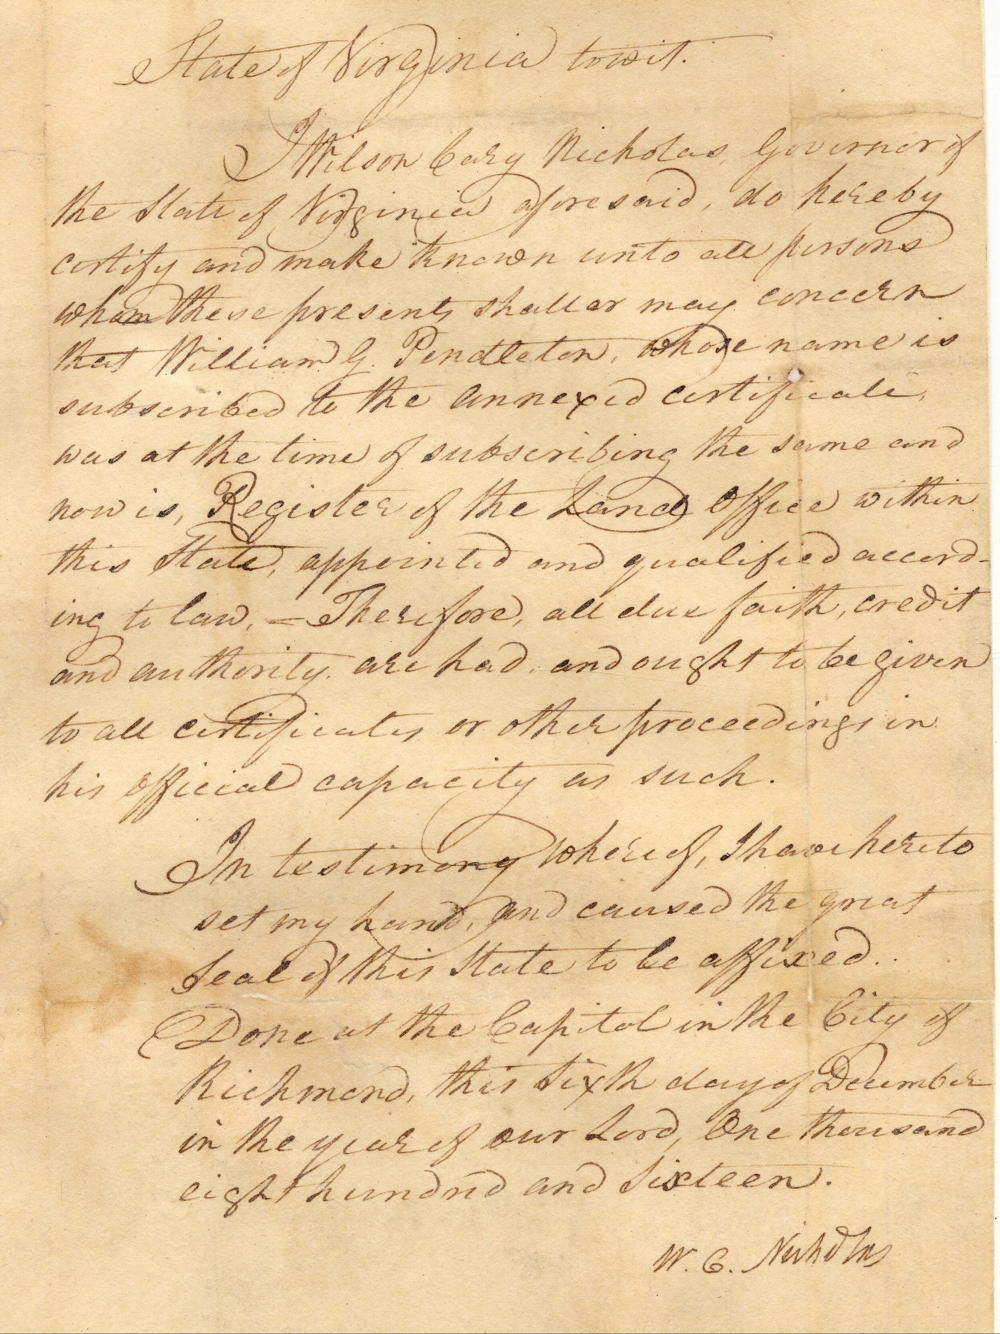 State of Virginia towit.
I Wilson Cary Nicholas, Governor of
the State of Virginia aforesaid, do hereby
certify and make known unto all persons
whom these presents shall or may concern
that William G. Pendleton, whose name is
subscribed to the annexed certificate,
was at the time of subscribing the same and
now is, Register of the Land Office within
this State, appointed and qualified accord-
ing to law, — Therefore, all due faith, credit
and authority are had and ought to be given
to all certificates or other proceedings in
his official capacity as such.
In testimony whereof, I have hereto
set my hand, and caused the great
Seal of this State to be affixed.
Done at the Capitol in the City of
Richmond, this Sixth day of December
in the year of our Lord, One thousand
eight hundred and Sixteen.
W. C. Nicholas